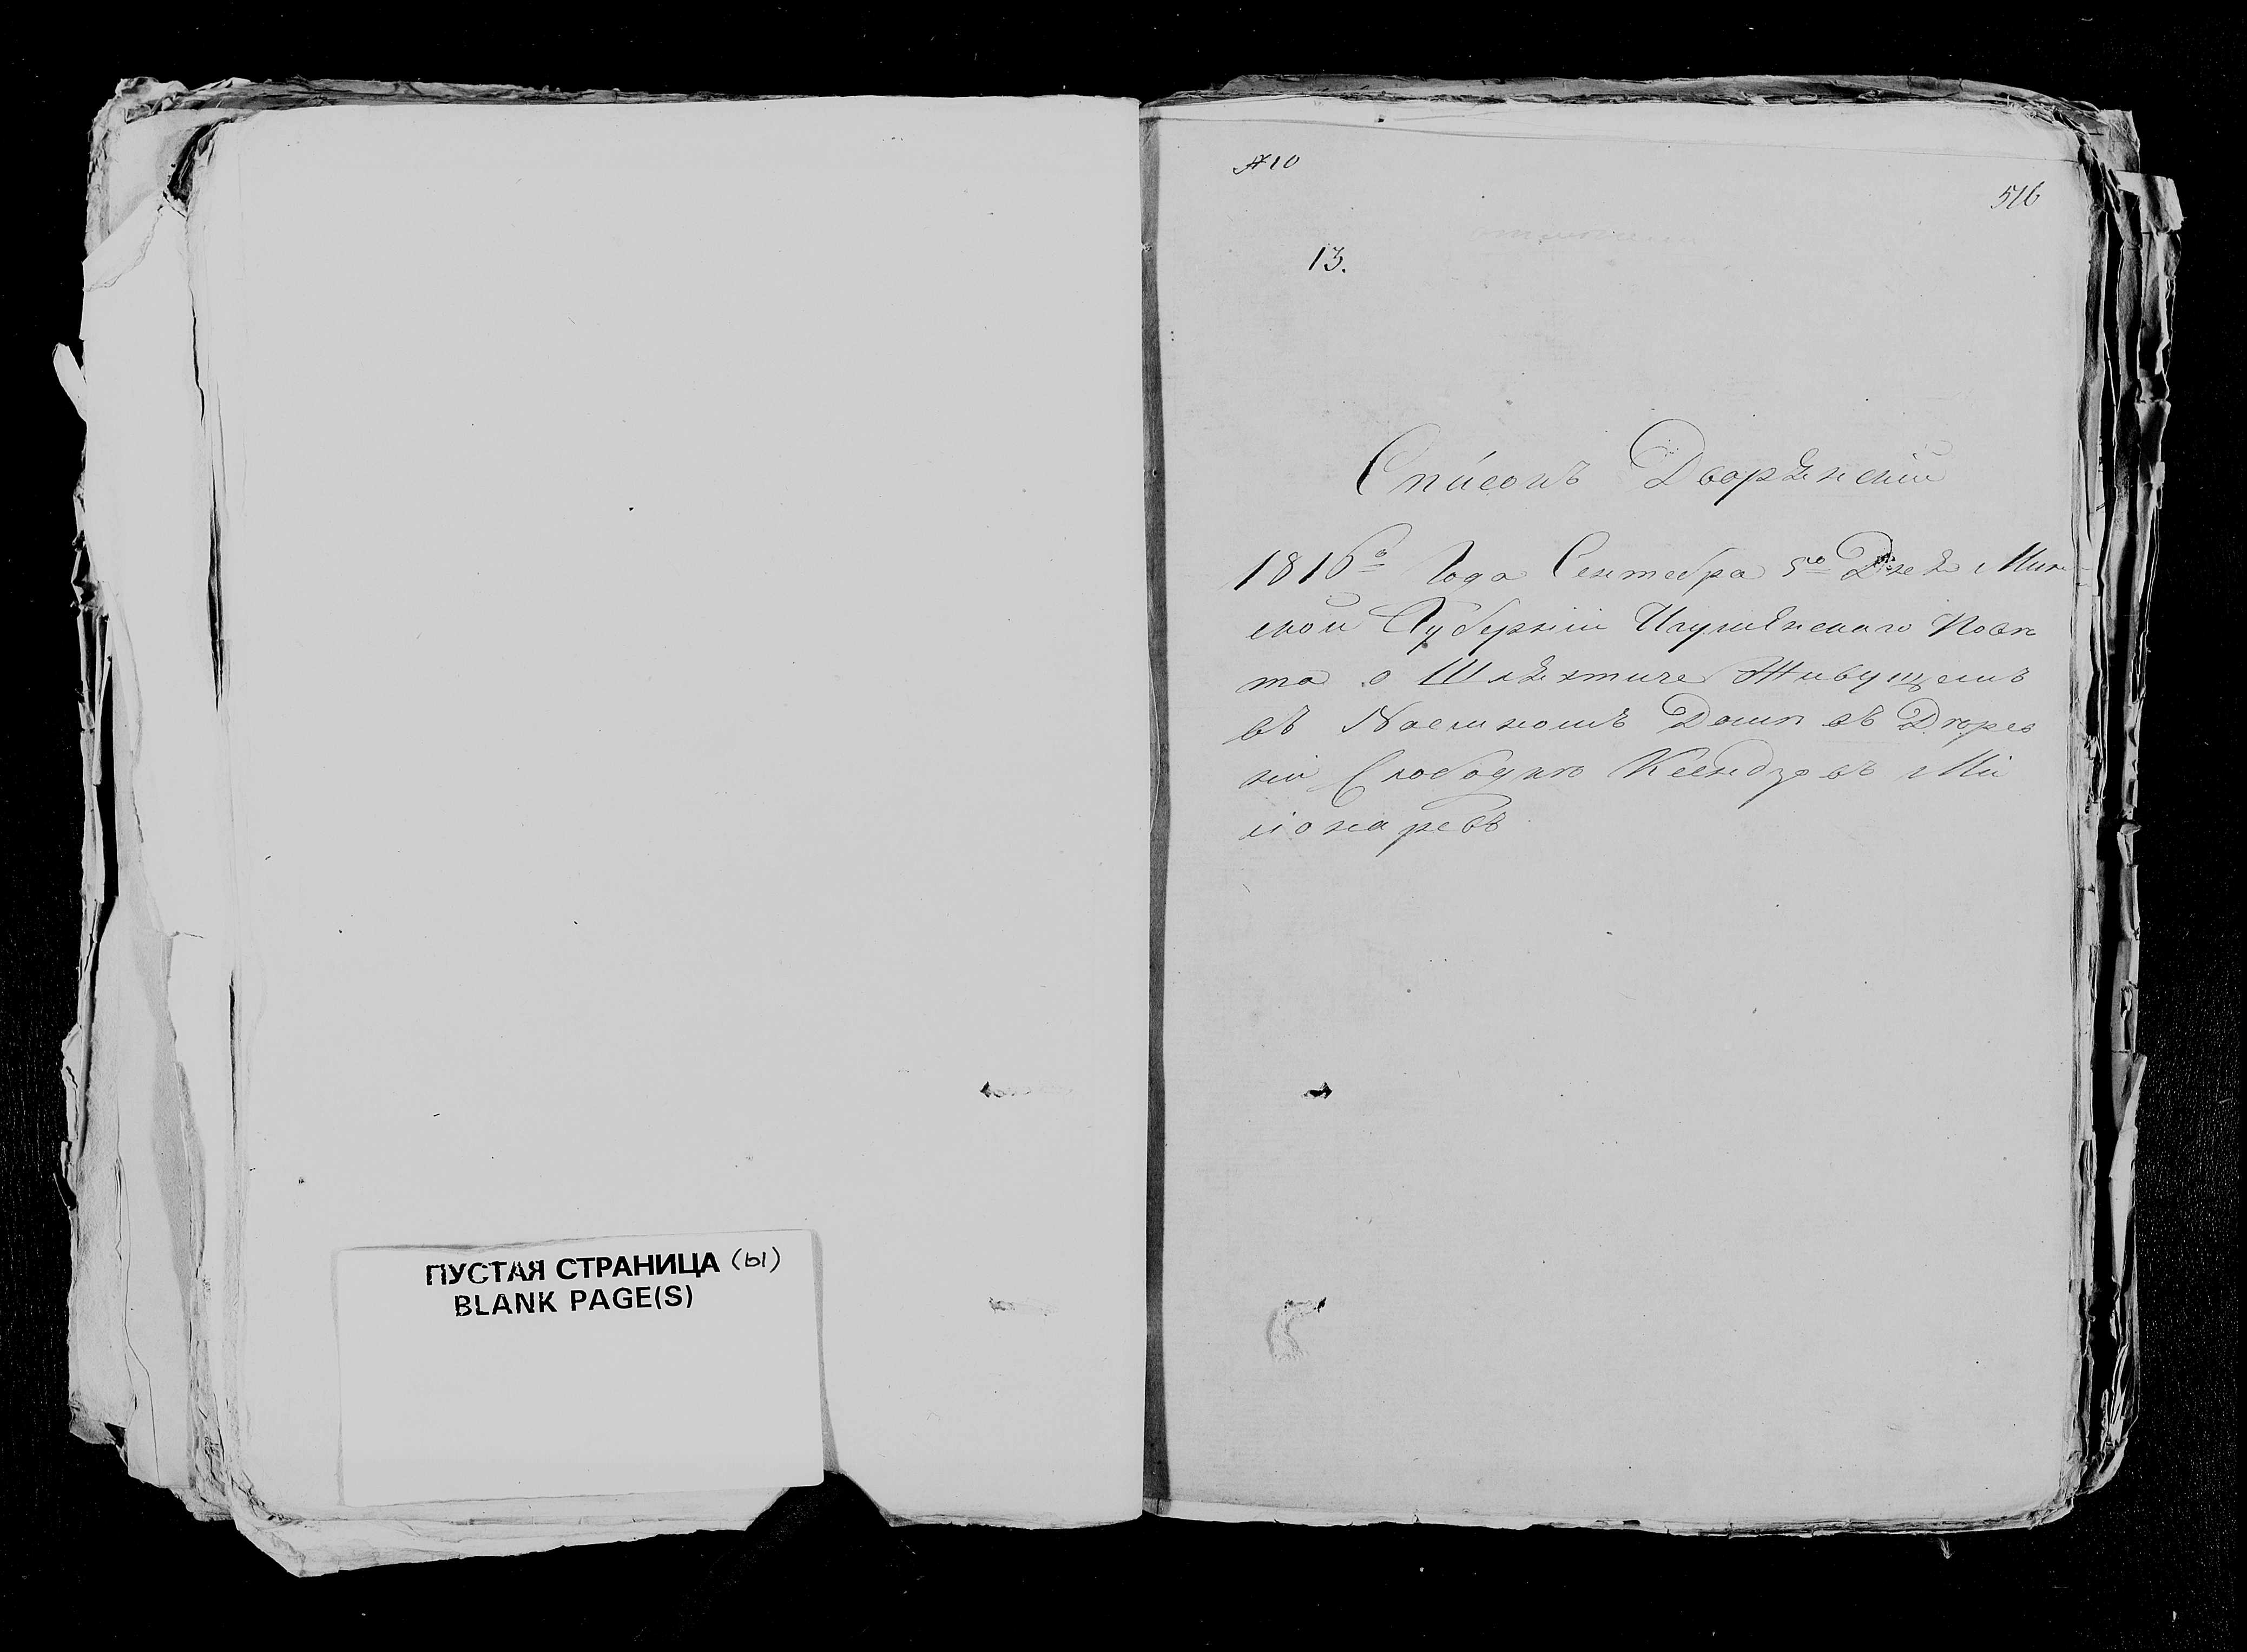 ПУСТАЯ СТРАНИЦА (ы)
BLANK PAGE(S)
№10
516
13.
Спи́сокъ Дворѣнскій
1816го Года Сентебра 5го Днѣ Мин
ской Губерніи Игумѣнскаго Повѣ
та о Шлѣхтиче Живущемъ
въ Наемномъ Домѣ въ Дѣрев
ни Слободкѣ Ксендзовъ Ми
сіонаревъ